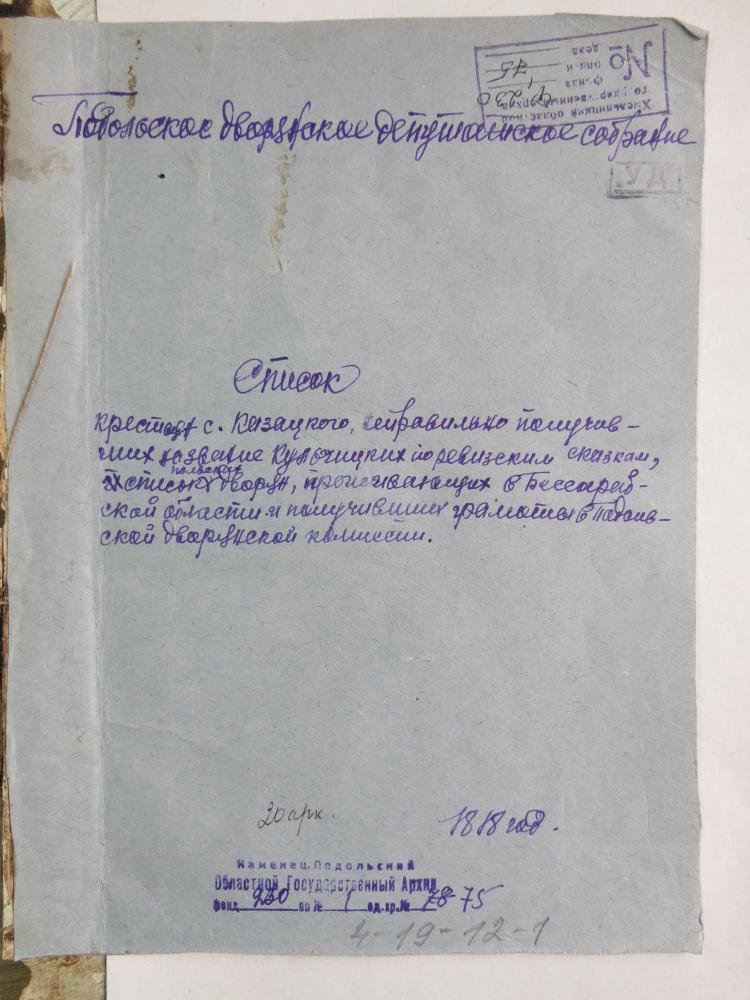 Хмельницкий областной
государственный архив
фонда Ф230
опи.и 1
№ дела 75
Подольское дворянское депутатское собрание
УД
Список
крестьян с. Казацкого, неправильно получив-
ших название Кульчицких по ревизским сказкам,
и список польских дворян, проживающих в Бессараб-
ской области и получивших грамоты в Подоль-
ской дворянской комиссии.
20 арк.
1818 год.
Каменец.Подольский
Областной Государственный Архив
фонд 230 оп № 1 ед.хр.№ 78 75
4-19-12-1